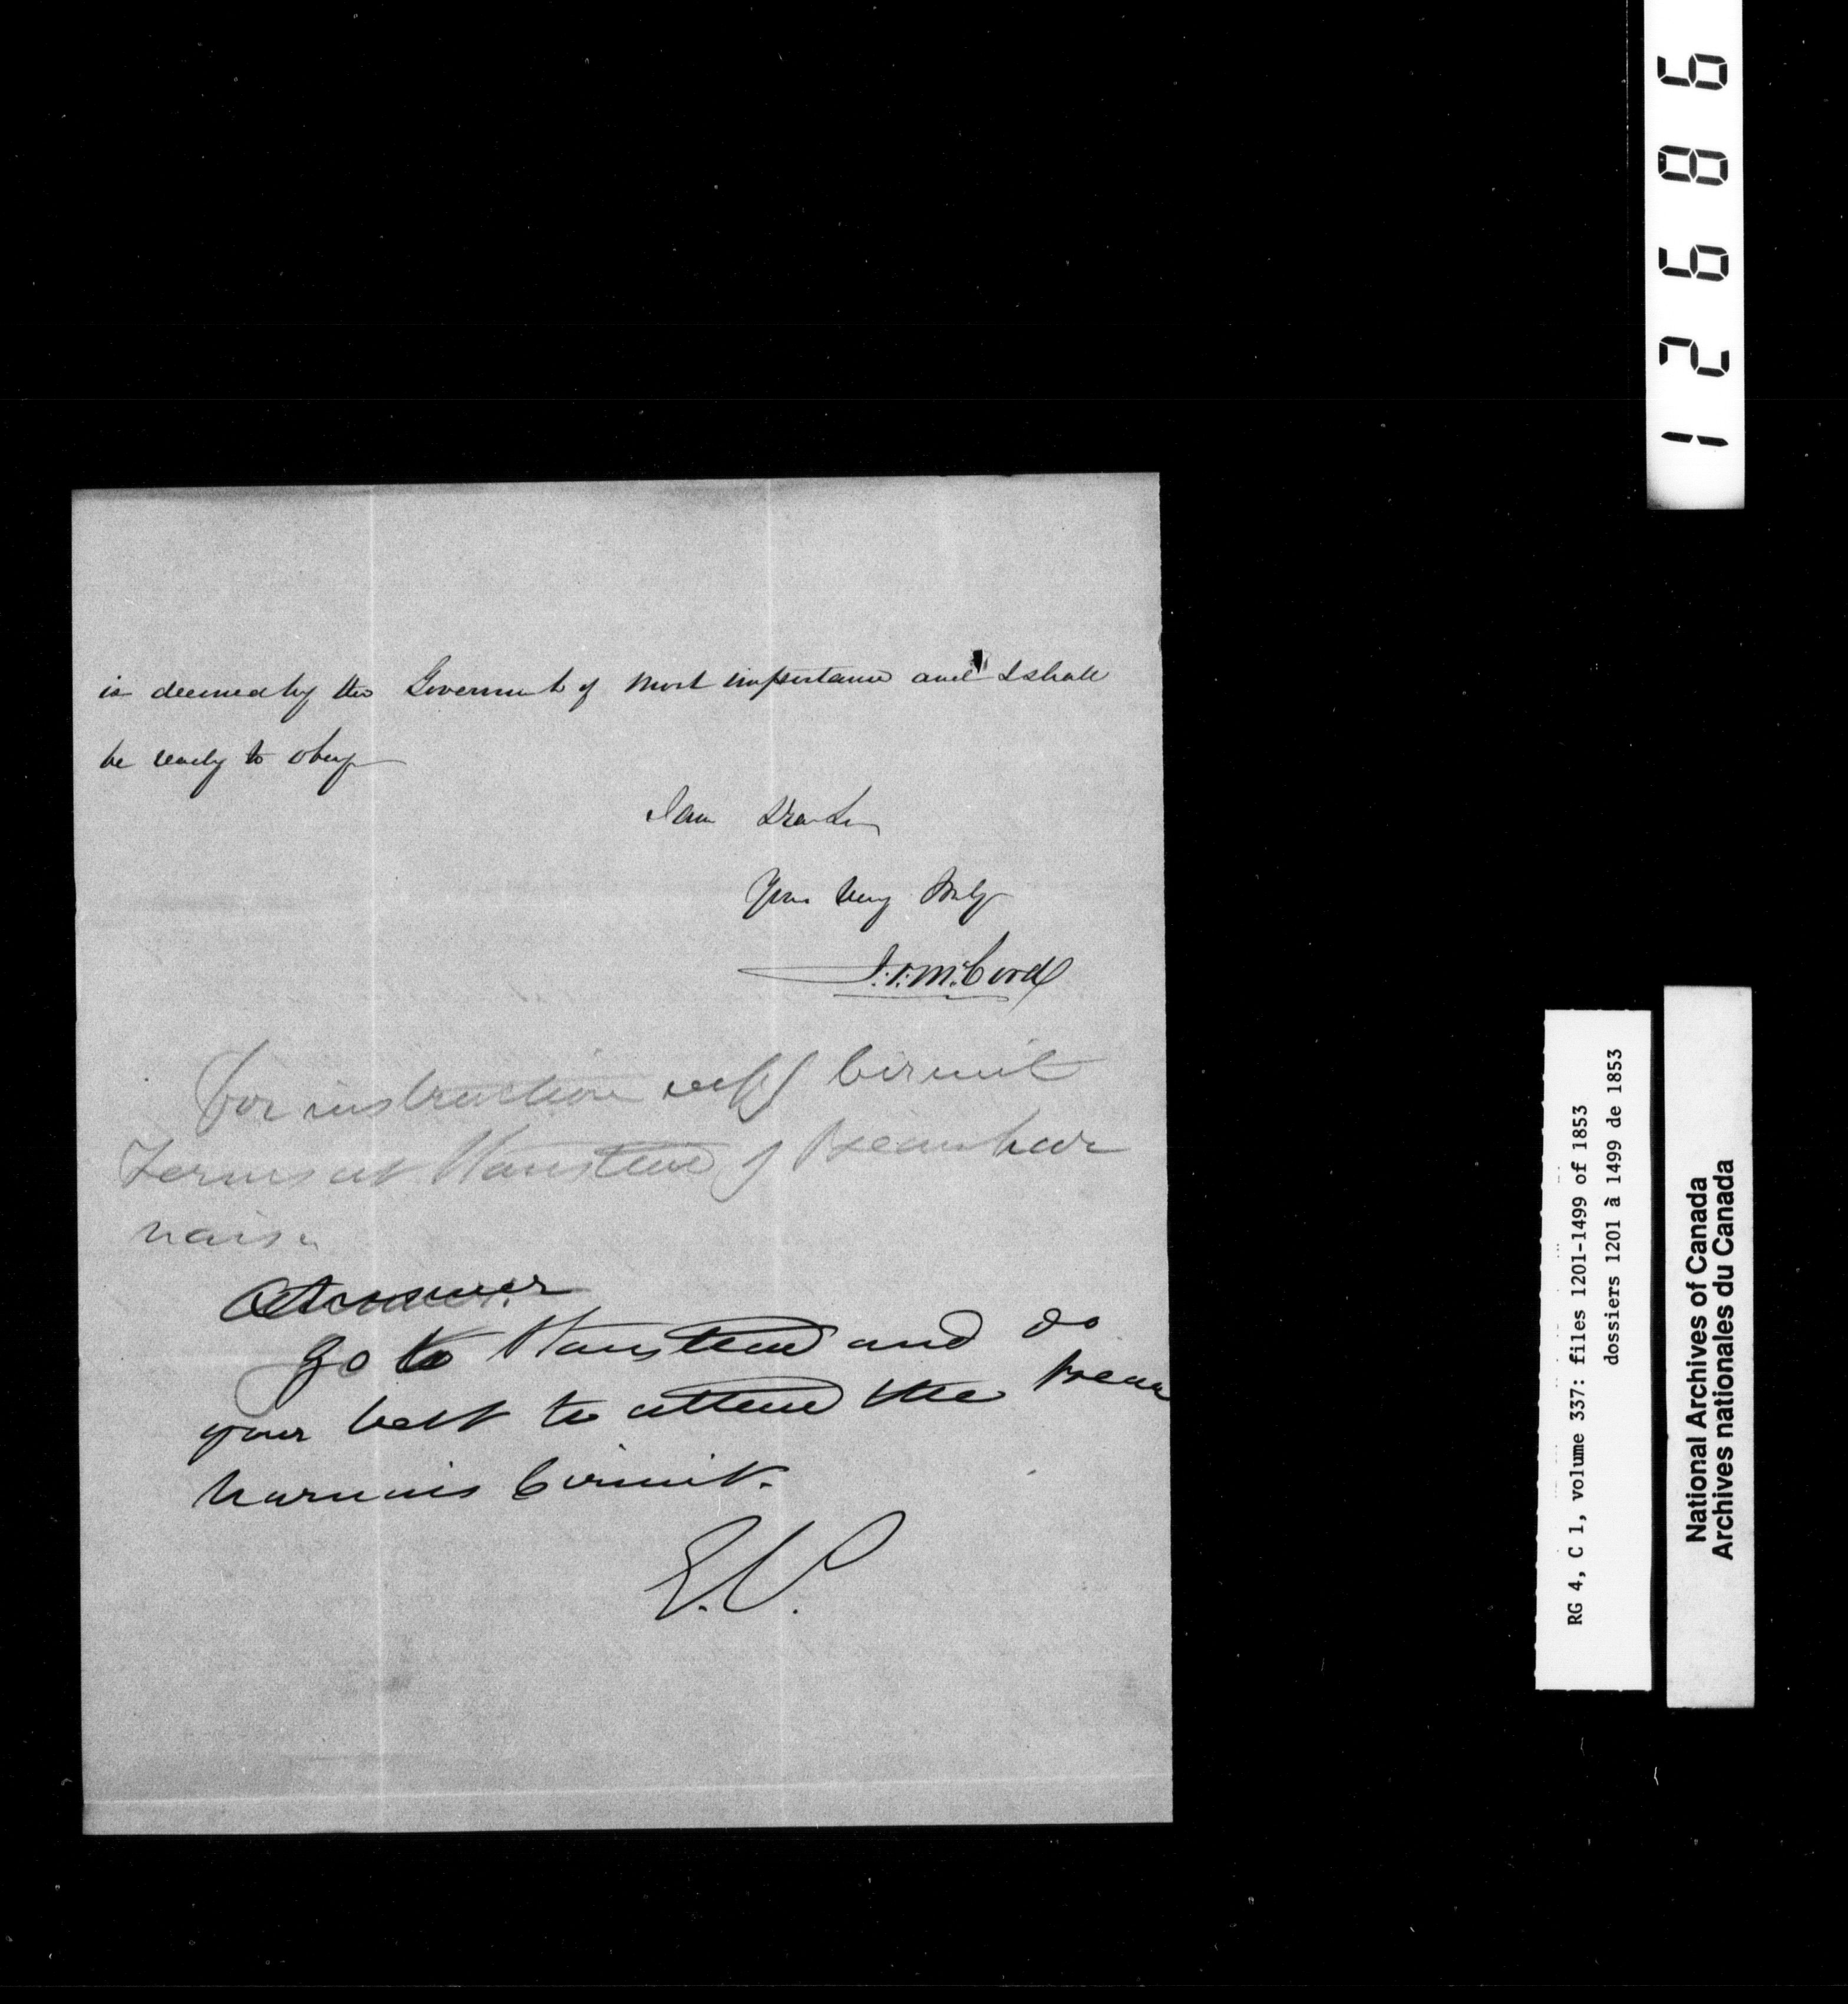 is deemed by the Government of most importance and I shall
be ready to obey
I am Dear Sir
Yours Very Truly
J. S. McCord
For instruction resp Circuit
Terms at Stanstead & Beauhar
nais.
Answer
Go to Stanstead and do
your best to attend the Beau
harnais Circuit.
12686
RG 4, C 1, volume 337: files 1201-1499 of 1853
dossiers 1201 à 1499 de 1853
National Archives of Canada
Archives nationales du Canada